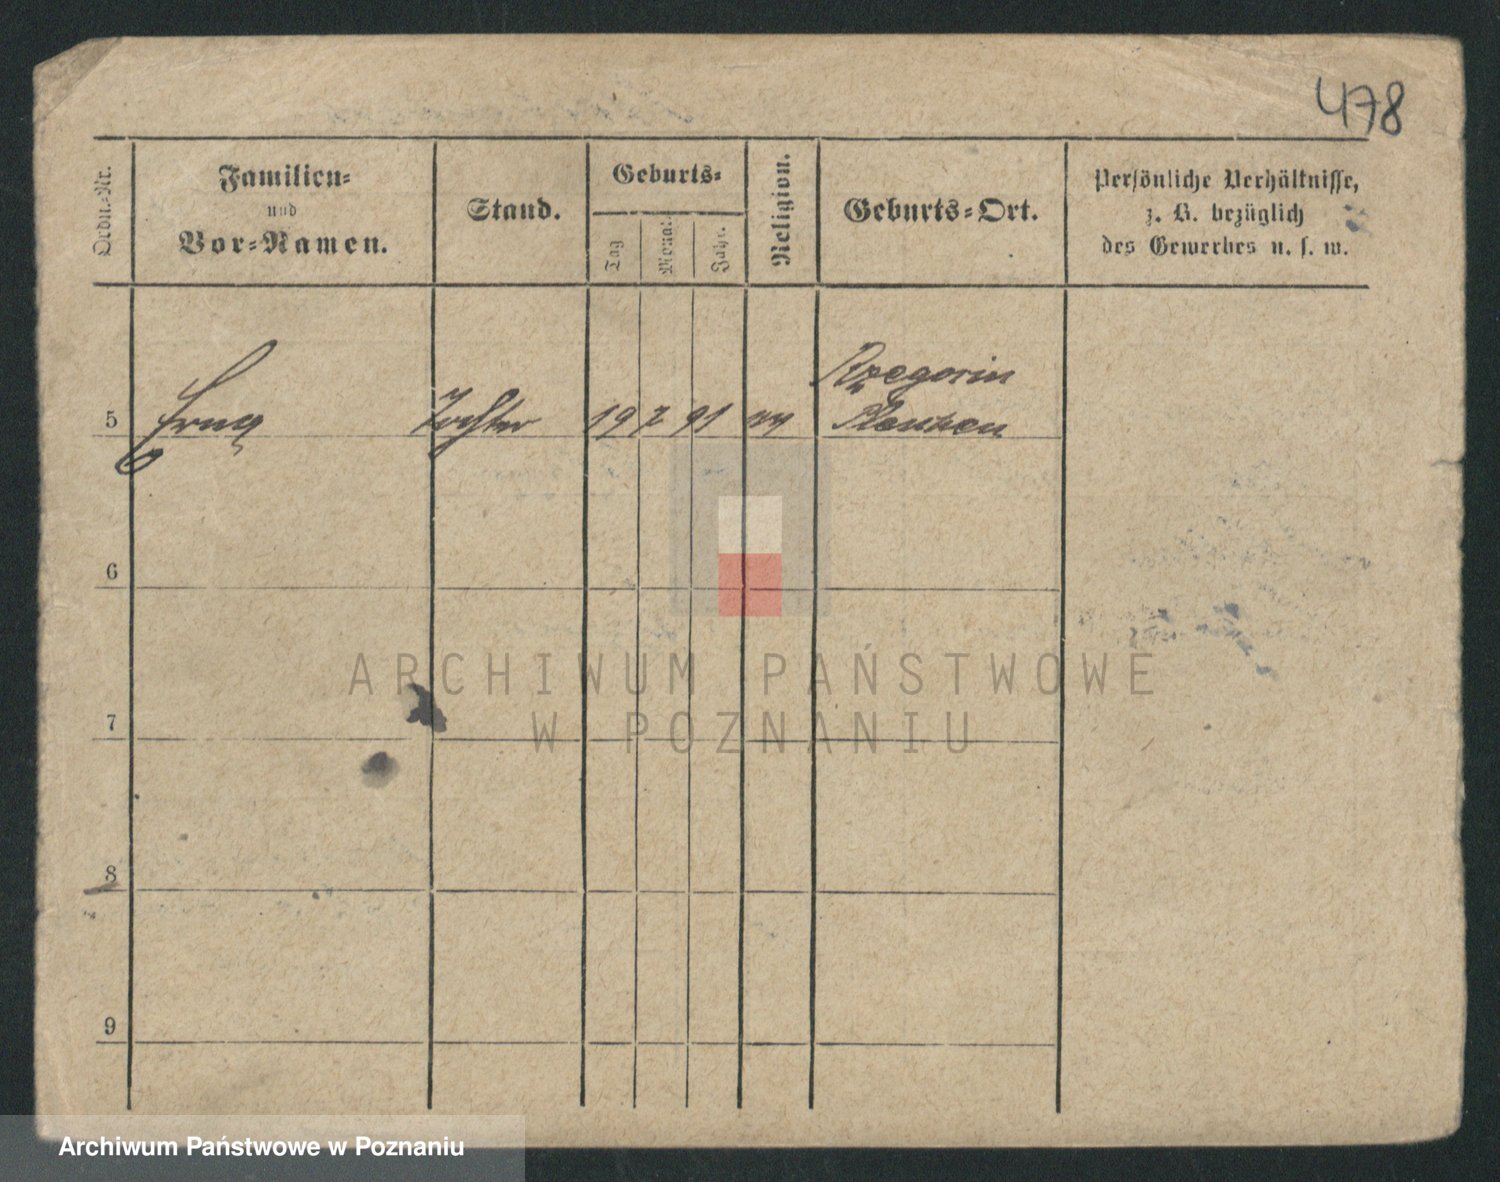 478
Ordn.-Nr.
Familien-
und
Vor-Namen.
Stand.
Geburts-
Tag
Monat
Jahr.
Religion.
Geburts-Ort.
Persönliche Verhältnisse,
z. B. bezüglich
des Gewerbes u. s. w.
Rzegocin
5 Erna Tochter 19 2 91
6
7
8
9
ARCHIWUM PAŃSTWOWE
W POZNANIU
Archiwum Państwowe w Poznaniu